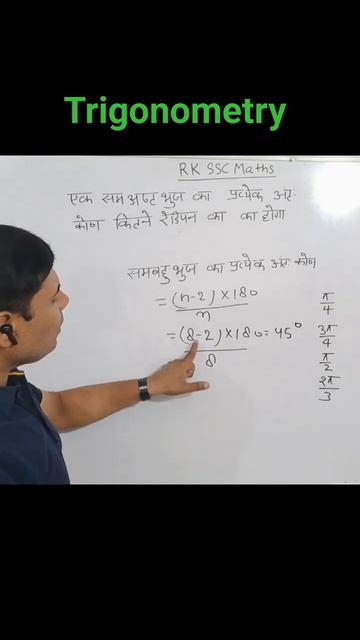 Trigonometry
RK SSC Maths
एक सम अष्ट भुज का प्रत्येक अंतः
कोण कितने रेडियन का का होगा
समबहु भुज का प्रत्येक अंतः कोण
= (n-2) × 180
n
= (8-2) × 180 = 45°
8
π/4
3π/4
π/2
2π/3